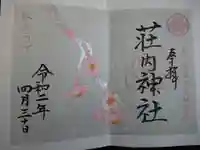 奉拝
荘内神社
令和二年
四月三十日